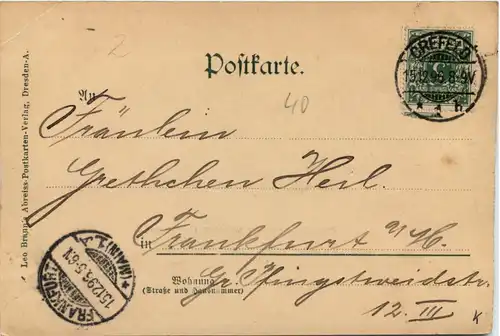 2
CREFELD
15.12.96.8-9V
* 1 h
Postkarte.
40
An
Fräulein
Grethchen Heil.
in Frankfurt a/M.
Wohnung
Gr. Pfingstweidstr.
(Straße und Hausnummer)
12. III
K
FRANKFURT
15.12.96.5-6N.
* (MAIN) 1.
Leo Brann's Abreiss-Postkarten-Verlag, Dresden-A.